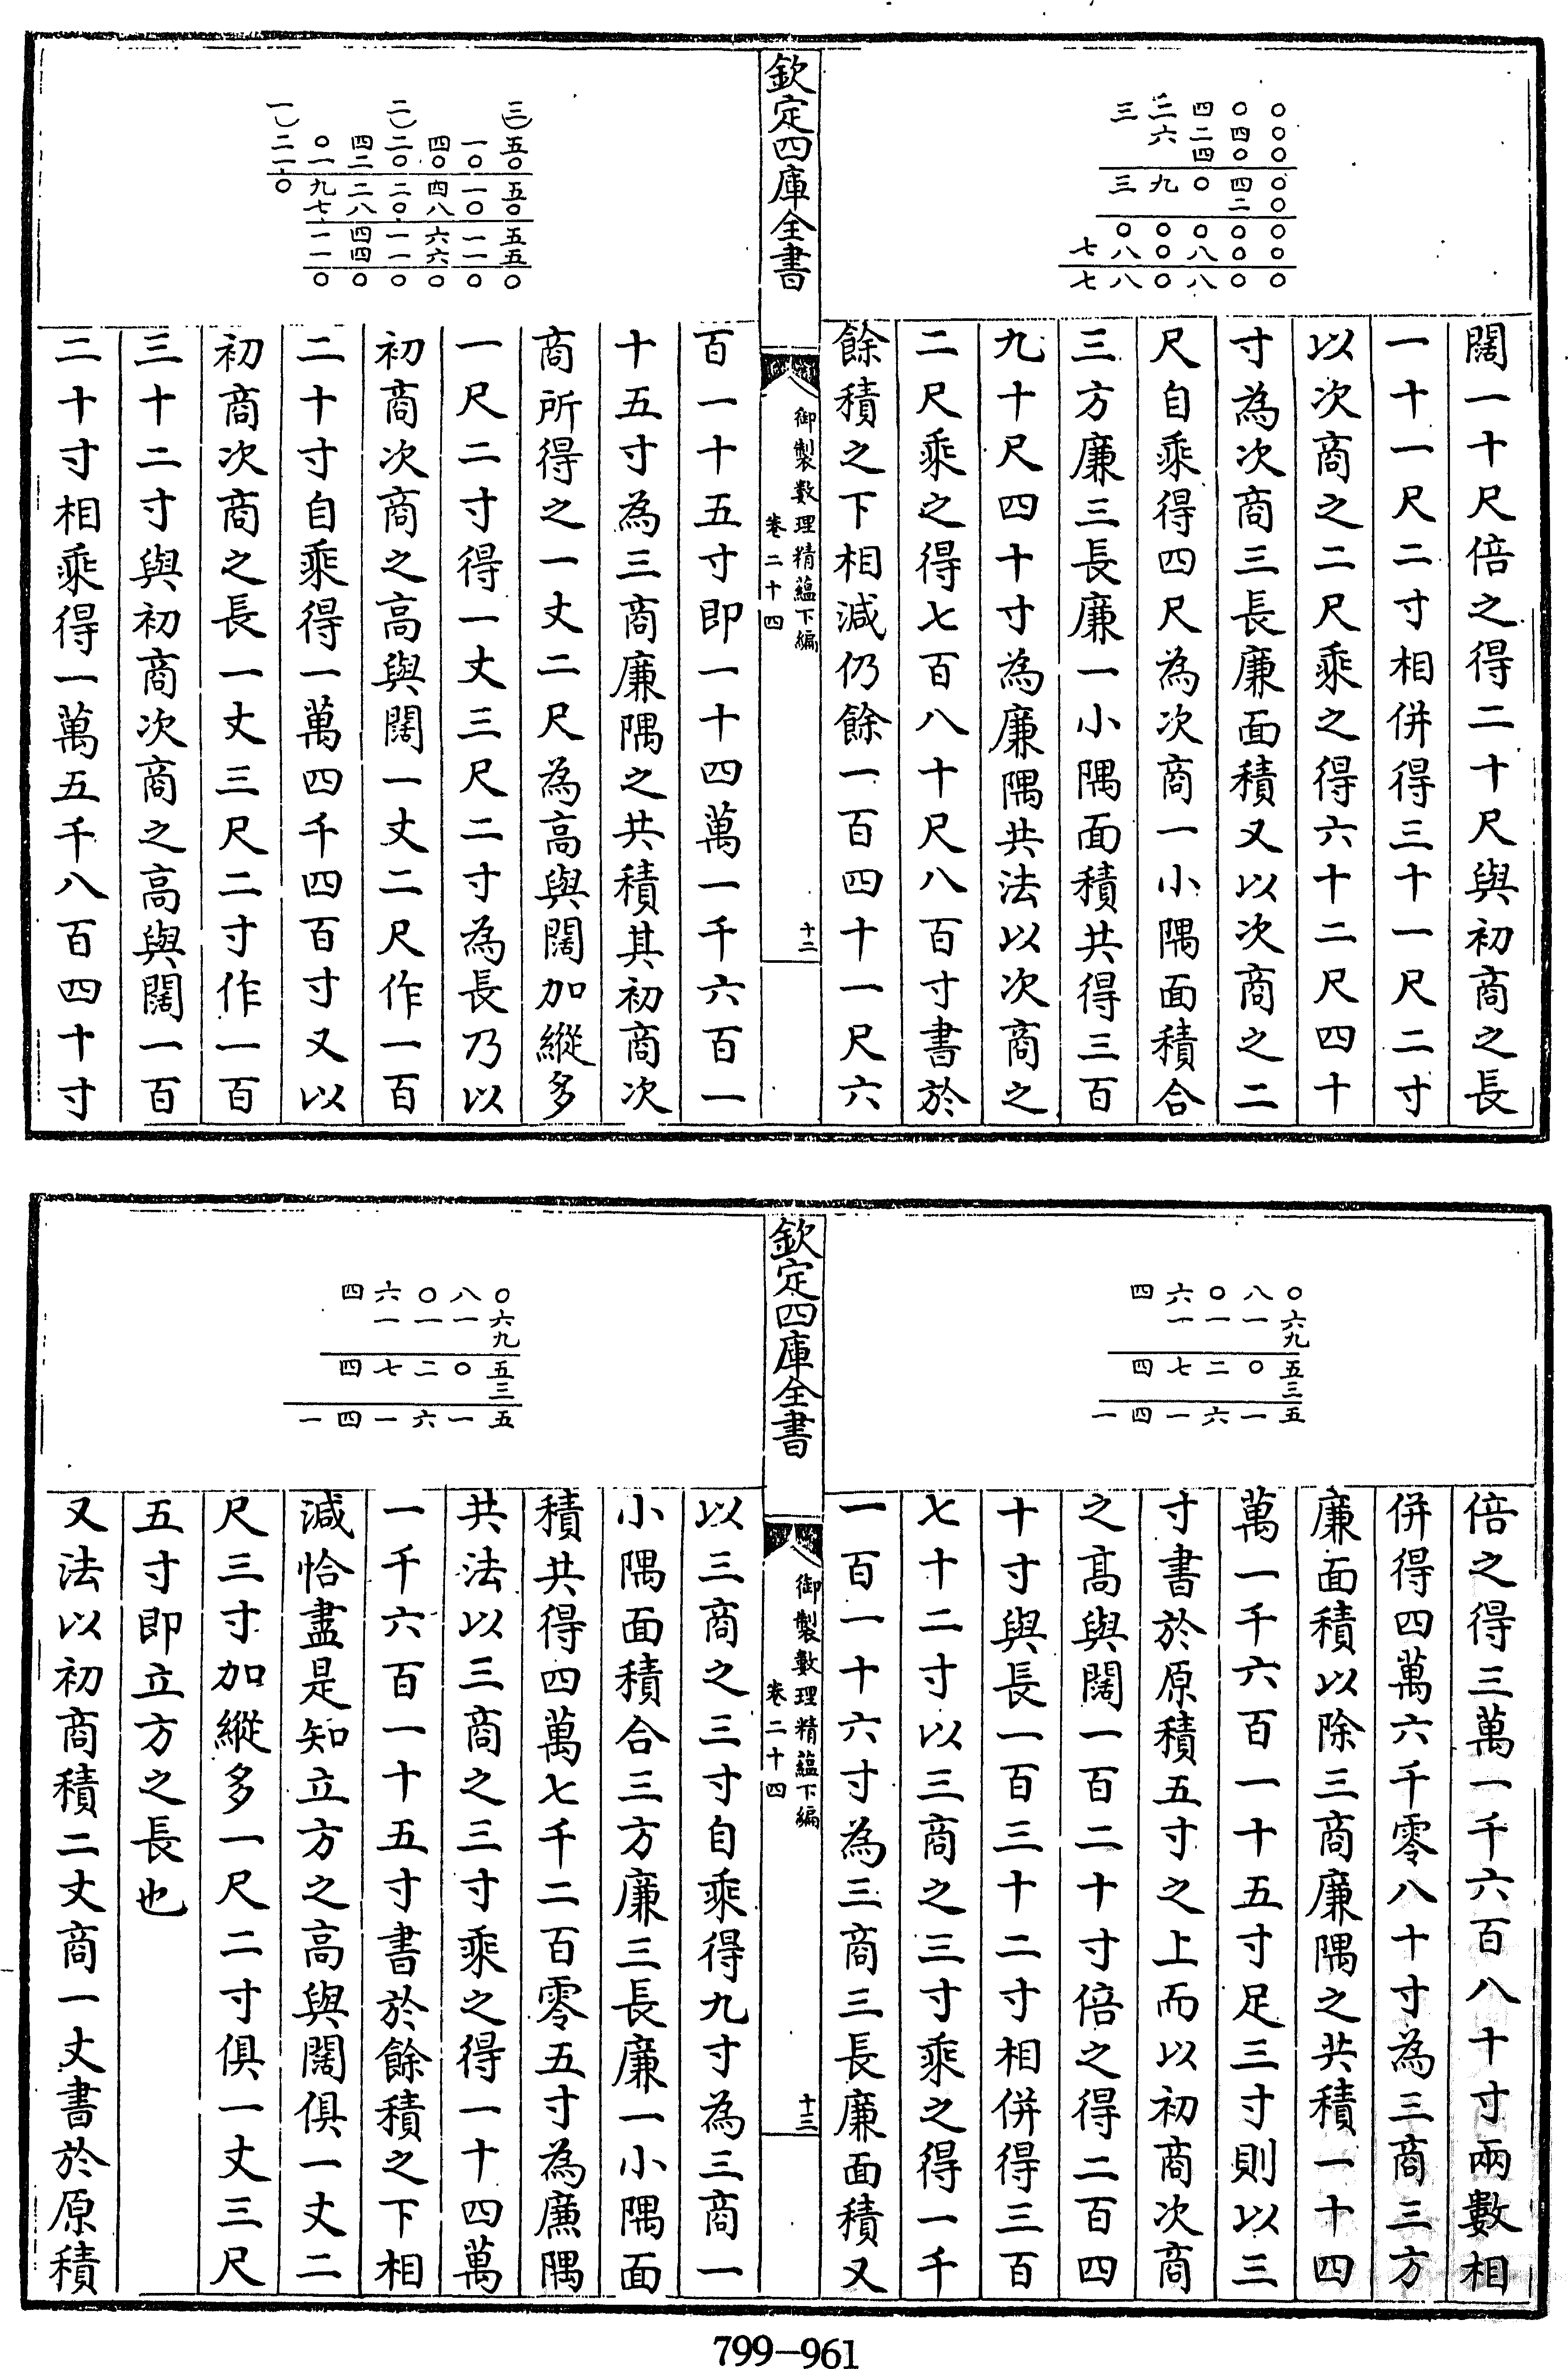 〇〇〇〇〇〇〇〇
〇四〇四二〇〇〇
四二四〇〇八八
二六九〇〇〇
三三〇八八
七七
闊一十尺倍之得二十尺與初商之長
一十一尺二寸相併得三十一尺二寸
以次商之二尺乘之得六十二尺四十
寸為次商三長廉面積又以次商之二
尺自乘得四尺為次商一小隅面積合
三方廉三長廉一小隅面積共得三百
九十尺四十寸為廉隅共法以次商之
二尺乘之得七百八十尺八百寸書於
餘積之下相減仍餘一百四十一尺六
欽定四庫全書
御製數理精蘊下編
卷二十四
十二
三五〇五〇五五〇
一〇一〇一一〇
四〇四八六六〇
二二〇二〇一一〇
四二二八四四〇
〇一九七一一〇
一二一〇
百一十五寸即一十四萬一千六百一
十五寸為三商廉隅之共積其初商次
商所得之一丈二尺為高與闊加縱多
一尺二寸得一丈三尺二寸為長乃以
初商次商之高與闊一丈二尺作一百
二十寸自乘得一萬四千四百寸又以
初商次商之長一丈三尺二寸作一百
三十二寸與初商次商之高與闊一百
二十寸相乘得一萬五千八百四十寸
〇六九五三五
八一〇一
〇一二六
六一七一
四四四
一
倍之得三萬一千六百八十寸兩數相
併得四萬六千零八十寸為三商三方
廉面積以除三商廉隅之共積一十四
萬一千六百一十五寸足三寸則以三
寸書於原積五寸之上而以初商次商
之高與闊一百二十寸倍之得二百四
十寸與長一百三十二寸相併得三百
七十二寸以三商之三寸乘之得一千
一百一十六寸為三商三長廉面積又
欽定四庫全書
御製數理精蘊下編
卷二十四
十三
〇六九五三五
八一〇一
〇一二六
六一七一
四四四
一
以三商之三寸自乘得九寸為三商一
小隅面積合三方廉三長廉一小隅面
積共得四萬七千二百零五寸為廉隅
共法以三商之三寸乘之得一十四萬
一千六百一十五寸書於餘積之下相
減恰盡是知立方之高與闊俱一丈二
尺三寸加縱多一尺二寸俱一丈三尺
五寸即立方之長也
又法以初商積二丈商一丈書於原積
799-961